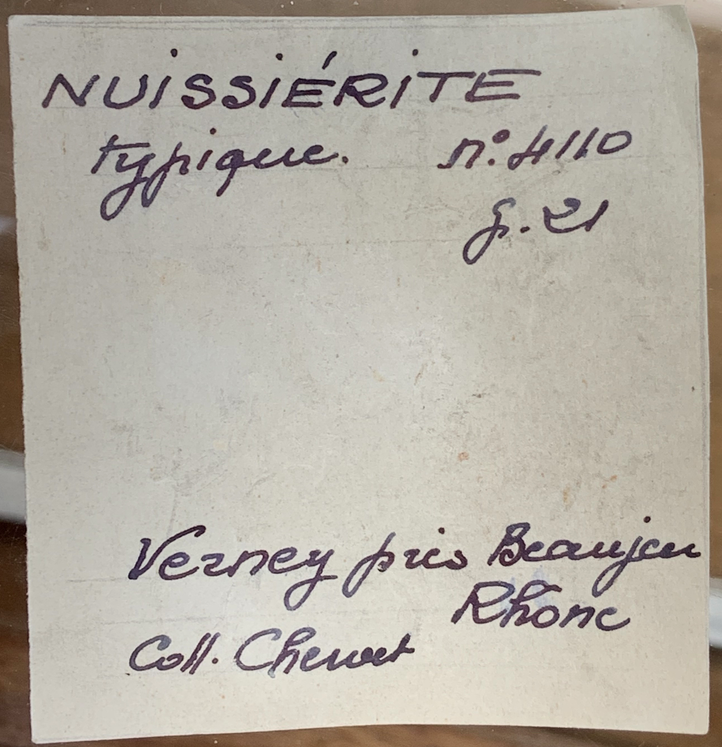 NUISSIÉRITE
typique. n° 4110
g. 21
Verney près Beaujeu
Rhône
Coll.